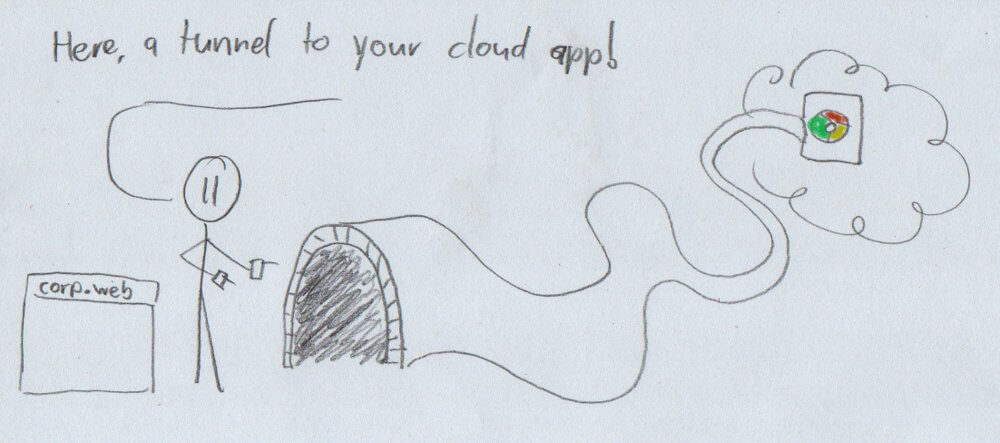 Here, a tunnel to your cloud app!
corp.web